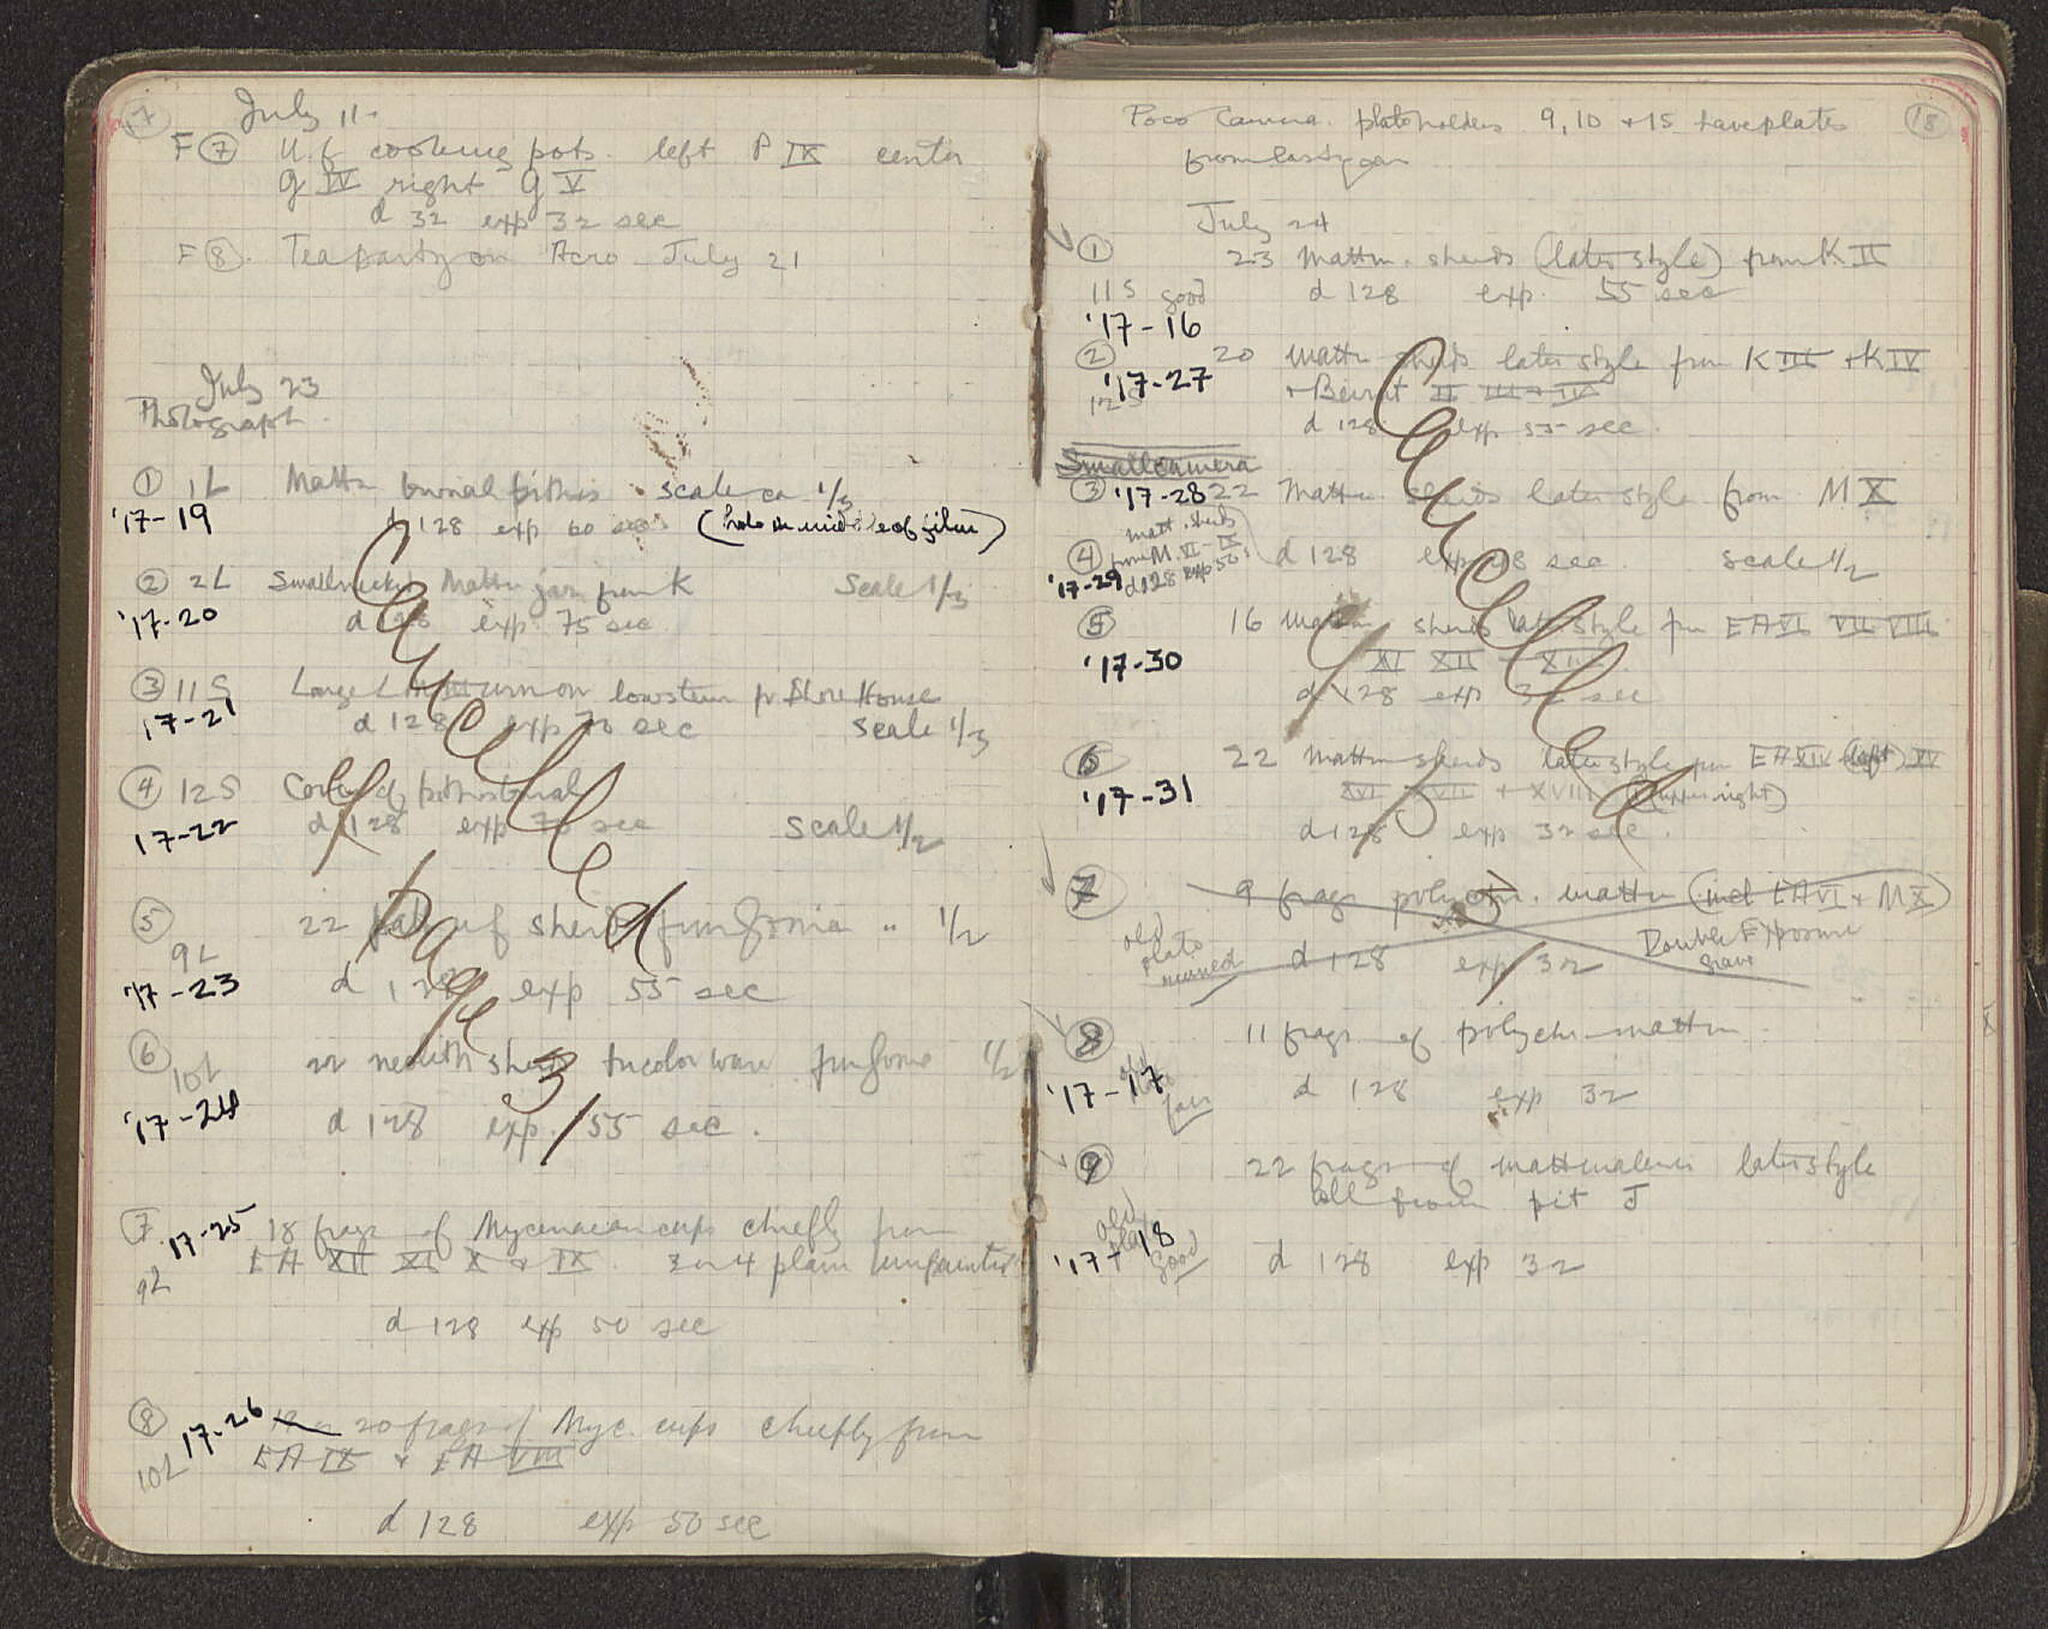 17
July 11-
F 7 U. f cooking pots. left P IX center
g IV right g V
d 32 exp 32 sec
F 8. Tea party on Acro - July 21
July 23
Photograph
1 1L Mattm burial pithos scale ca 1/3
'17-19 d 128 exp 60 secs (hole in middle of film)
2 2L Small necked Mattm jar from K Scale 1/3
'17-20 d 128 exp 75 sec
3 11S Large LH III urn on low stem fr Store House
17-21 d 128 exp 70 sec scale 1/3
4 12S Cover of pithos burial
17-22 d 128 exp 70 sec Scale 1/2
5 22 sherds from Gonia " 1/2
9L
'17-23 d 128 exp 55 sec
6 22 neolith sherds tricolor ware from Gonia 1/2
10L
'17-24 d 128 exp. 55 sec.
7 17-25 18 frags of Mycenaean cups chiefly from
EA XII XI X + IX 3 or 4 plain unpainted
9L
d 128 exp 50 sec
8 17-26 20 frags of Myc. cups chiefly from
EA IX + EA VIII
10L
d 128 exp 50 sec
Cancelled
page
3
Poco Camera. plateholders 9, 10 + 15 have plates 18
from last year
July 24
1 23 mattm. sherds (later style) from K II
11S good d 128 exp. 55 sec
'17-16
2 20 mattm sherds later style from K III + K IV
'17-27 + Beirut II III + IV
12S
d 128 exp 55 sec.
Small camera
3 '17-28 22 Mattm. sherds later style from M X
matt. sherds
4 from M VI - IX d 128 exp 28 sec scale 1/2
'17-29 d 128 exp 50 s
5 16 mattm sherds late style fm EA VI VII VIII
'17-30 XI XII - XIII
d 128 exp 32 sec
6 22 mattm sherds later style fm EA XIV (left) XV
'17-31 XVI XVII + XVIII (upper right)
d 128 exp 32 sec.
7 9 frags polychr. mattm (incl EA VI + M X)
old
plate
ruined d 128 exp 32 Double Exposure
Cancelled
8 11 frags of polychr mattm
old
plate
'17-17 d 128 exp 32
fair
9 22 frags of mattmalerei later style
all from pit J
old
plate
'17-18 d 128 exp 32
good